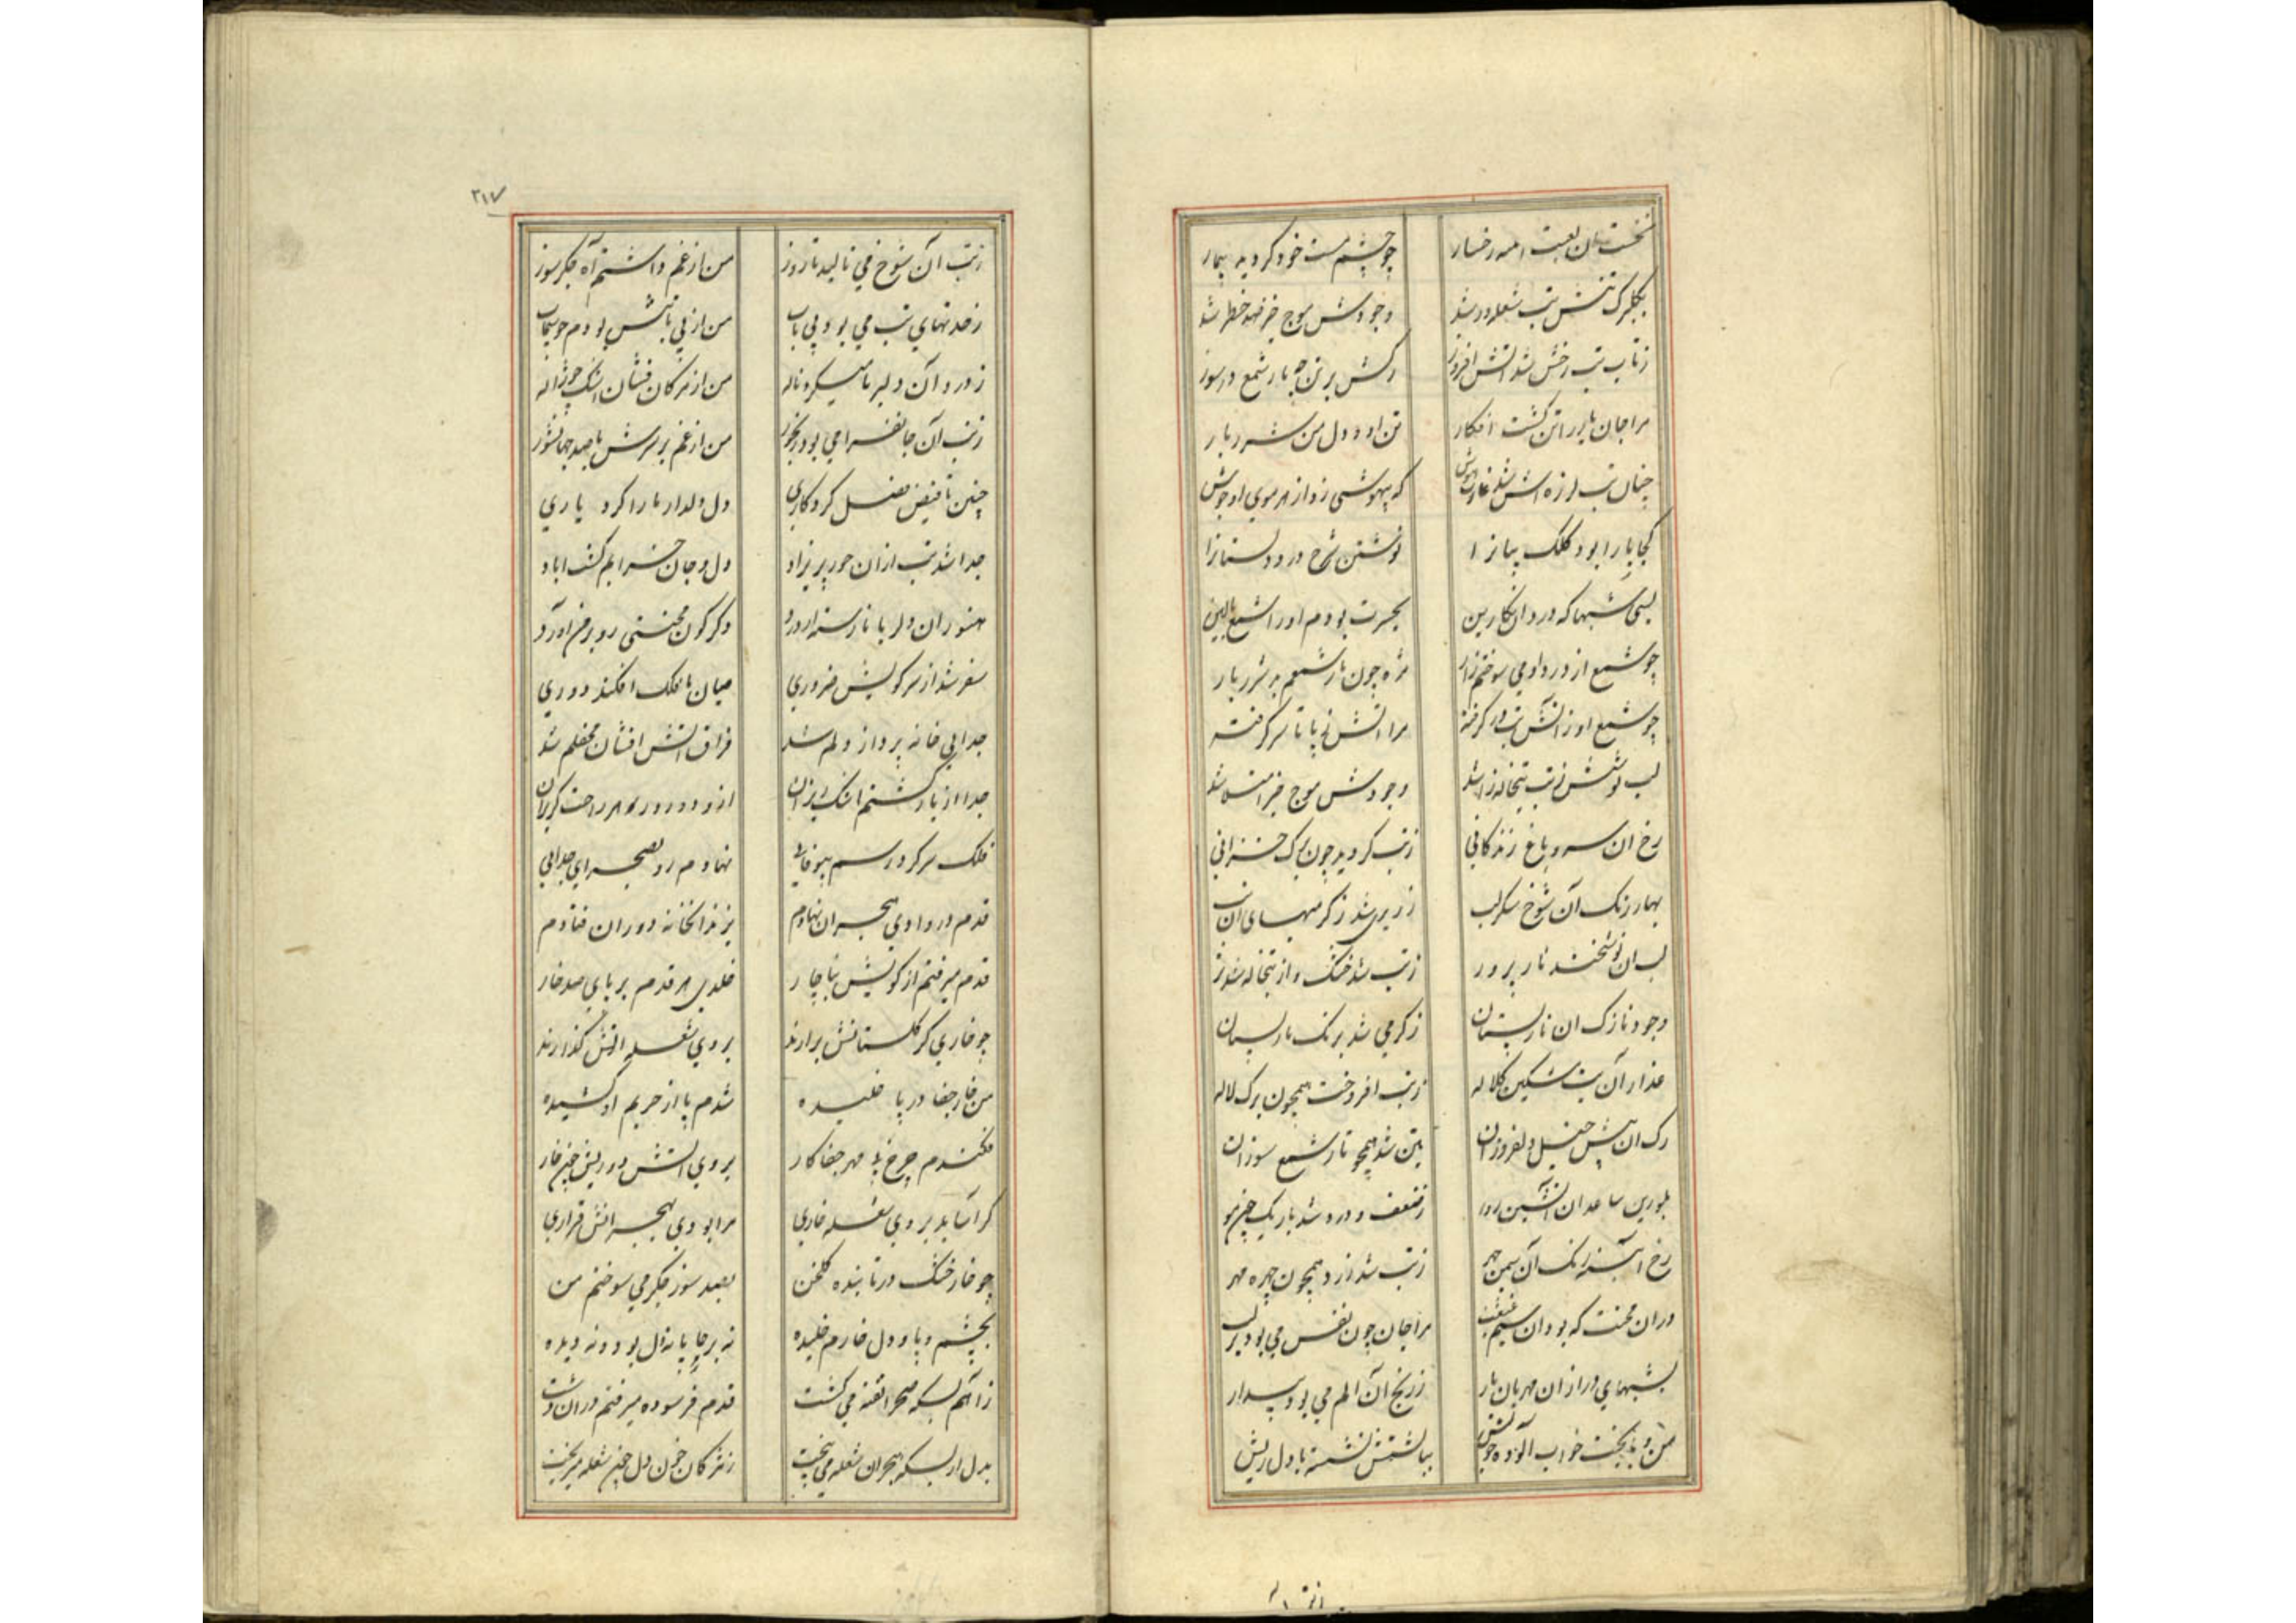 نخست آن لعبت مه رخسار چو چشم مست خود گردید بیمار
گلبرگ تنش تب شعله ور شد وجودش موج خیز صد خطر شد
ز تاب تب رخش شد آتش افروز رگش بر تن چو تار شمع در سوز
مرا جان یار را تن گشت افکار تن او و دل من شرر بار
چنان تب لرزه اش شد غارت هوش که بیهوشی زد از هر موی او جوش
کجا یارا بود کلک بیانرا نوشتن شرح درد دلستانرا
بسی شبها که در دان نکارین بحسرت بودم او را شمع بالین
چو شمع از درد او می سوختم زار مژه چون تار شمعم بد شرر بار
چو شمع او ز آتش تب در گرفته مرا آتش ز پا تا سر گرفته
لب نوشش ز تب تبخاله زا شد وجودش موج خیز شد
رخ ان سرو باغ زندکانی ز تب کردید چون برک خزانی
بهار رنک آن شوخ شکر لب زریری شد ز کرمیهای آن تب
لب ان نوشخند ناز پرور ز تب شد خشک و از تبخاله شد تر
وجود نازک ان نار پستان ز کرمی شد برنک نار پستان
عذار آن بت مشکین کلاله ز تب افروخت همچون برک لاله
رک ان دلفروزان بتن شد همچو تار شمع سوزان
بلورین ساعد ان آتشین رو ز ضعف و درد شد باریک چون مو
رخ آیینه رنک آن سیمین چهر ز تب شد زرد همچون چهره مهر
دران محنت که بود ان سیم غبغب مرا جان چون نفس می بود بر لب
بشبهای دراز ان مهربان یار ز رنج آن الم می بود بیدار
من و بخت خواب آلوده خویش ببالینش نشسته با دل ریش
۲۱۷
ز تب آن شوخ می نالید تا روز من از غم داشتم آه جکر سوز
ز صدمتهای تب می بود بی تاب من از بی تابیش بودم چو سیماب
ز درد آن دلبر ما میکرد ناله من از مژکان فشان اشک چو ژاله
ز تب آن جانفزا می بود رنجور من از غم بر سرش با صد جهان شور
چنین تا فیض فضل کردکاری دل دلدار ما را کرد یاری
جدا شد تب ازان حور پریزاد دل و جان خرابم کشت اباد
هنوز ان دلربا نارسته از درد دکرکون محنتی رو بر من آورد
سفر شد از سر کویش ضروری میان ما فلک افکند دوری
جدایی خانه پرداز دلم شد فراق آتش افشان محفلم شد
جدا از یار کشتم اشک ریزان از و دور و ز هر راحت کریزان
فلک سر کرد رسم بیوفایی نهادم رو بصحرای جدایی
قدم در وادی هجران نهادم بزندانخانه دوران فتادم
قدم میرفتم از کویش بناچار خلدی هر قدم بر پای صد خار
چو خاری کز کلستانش برارند بروی شعله آتش کذارند
من خار جفا در پا خلیده شدم پا از حریم او کشیده
فکندم چرخ بی مهر جفا کار بروی آتش دوریش چون خار
کر آساید بروی شعله خاری مرا بودی بهجرانش قراری
چو خار خشک در تابنده کلخن بصد سوز جکر می سوختم من
بچشم و پا و دل خارم خلیده نه بر جا پا نه دل بود و نه دیده
ز آهم بسکه صحرا تفته می کشت قدم فرسوده میرفتم دران دشت
بدل از بسکه هجران شعله می بیخت ز مژکان خون دل چون شعله میریخت